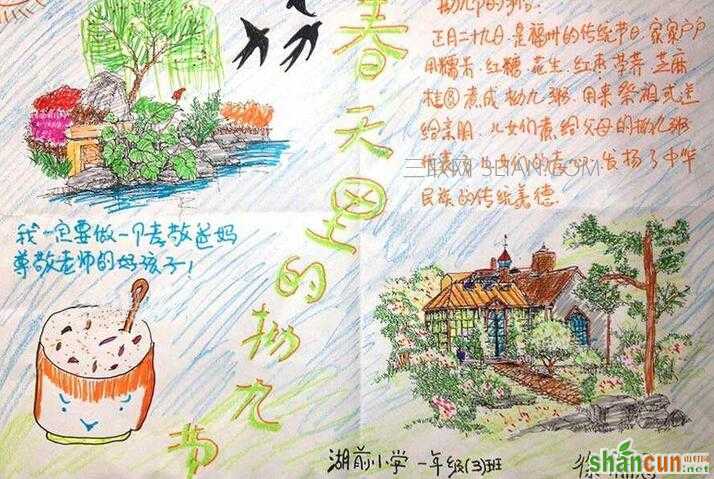 春天里的拗九节
正月二十九日.是福州的传统节日.家家户户
用糯米.红糖.花生.红枣.荸荠.芝麻
桂圆煮成拗九粥.用来祭祖或送
给亲朋.儿女们煮给父母的拗九粥
儿女们的孝心.发扬了中华
民族的传统美德.
三联网 3LIAN.COM
我一定要做一个孝敬爸妈
尊敬老师的好孩子！
湖前小学 一年级(3)班
徐
shancun
.net